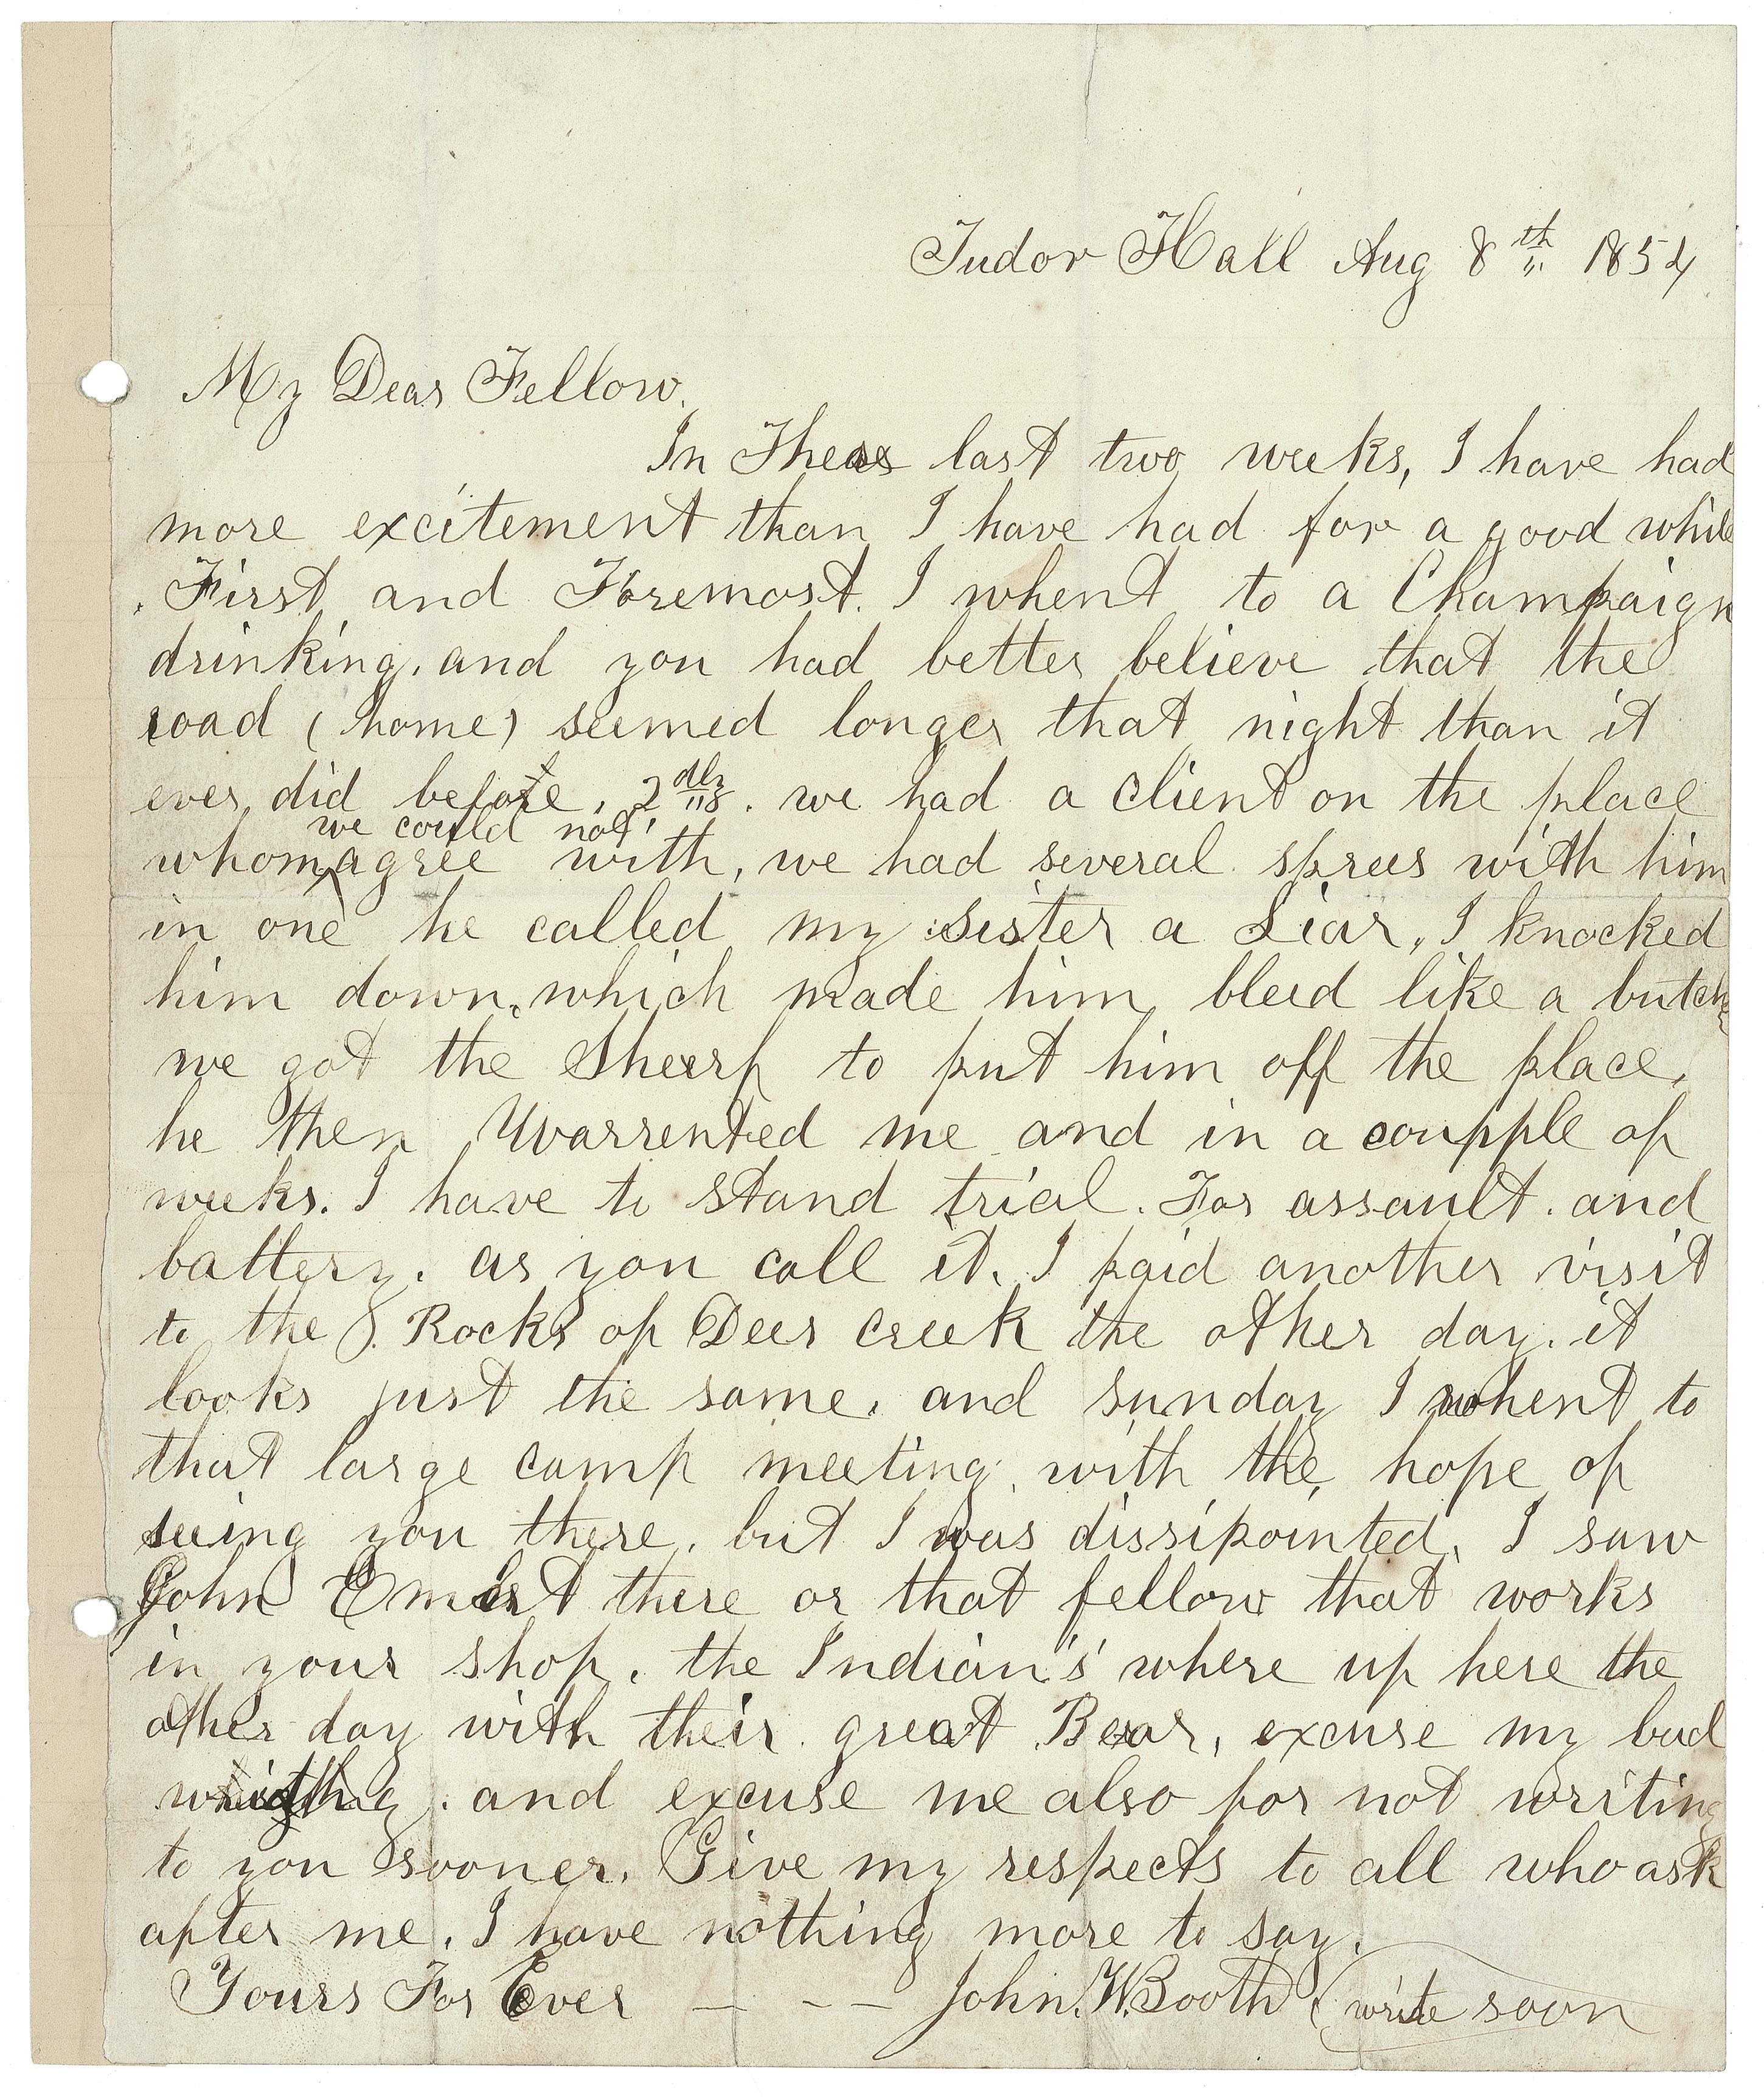 Tudor Hall Aug 8th 1854
My Dear Fellow.
In These last two weeks, I have had
more excitement than I have had for a good while
. First and Foremost. I whent to a Champaign
drinking, and you had better believe that the
road (home) seemed longer that night than it
ever did before. 2dly. we had a client on the place
we could not
whom agree with, we had several sprees with him
in one he called my sister a Liar, I knocked
him down, which made him bleed like a butcher
we got the Sheerf to put him off the place,
he then Warrented me and in a coupple of
weeks. I have to stand trial. For assault. and
battery. as you call it, I paid another visit
to the Rocks of Deer creek the other day. it
looks just the same, and sunday I whent to
that large camp meeting, with the hope of
seeing you there, but I was dissipointed, I saw
John there or that fellow that works
in your shop, the Indian's where up here the
other day with their great Bear, excuse my bad
and excuse me also for not writing
to you sooner. Give my respects to all who ask
after me, I have nothing more to say.
Yours For Ever — - - — John. W. Booth (write soon